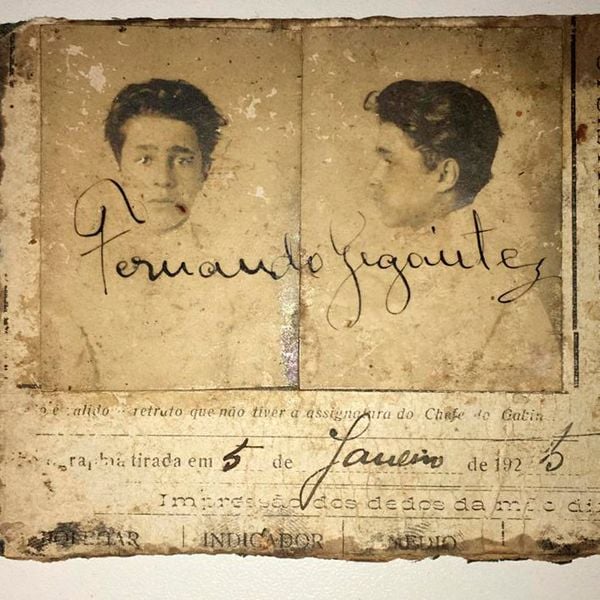 Fernando Gigante
é valido o retrato que não tiver a assignatura do Chefe do Gabin
graphia tirada em 5 de Janeiro de 1925
Impressão dos dedos da mão di
POLLEGAR INDICADOR MEDIO